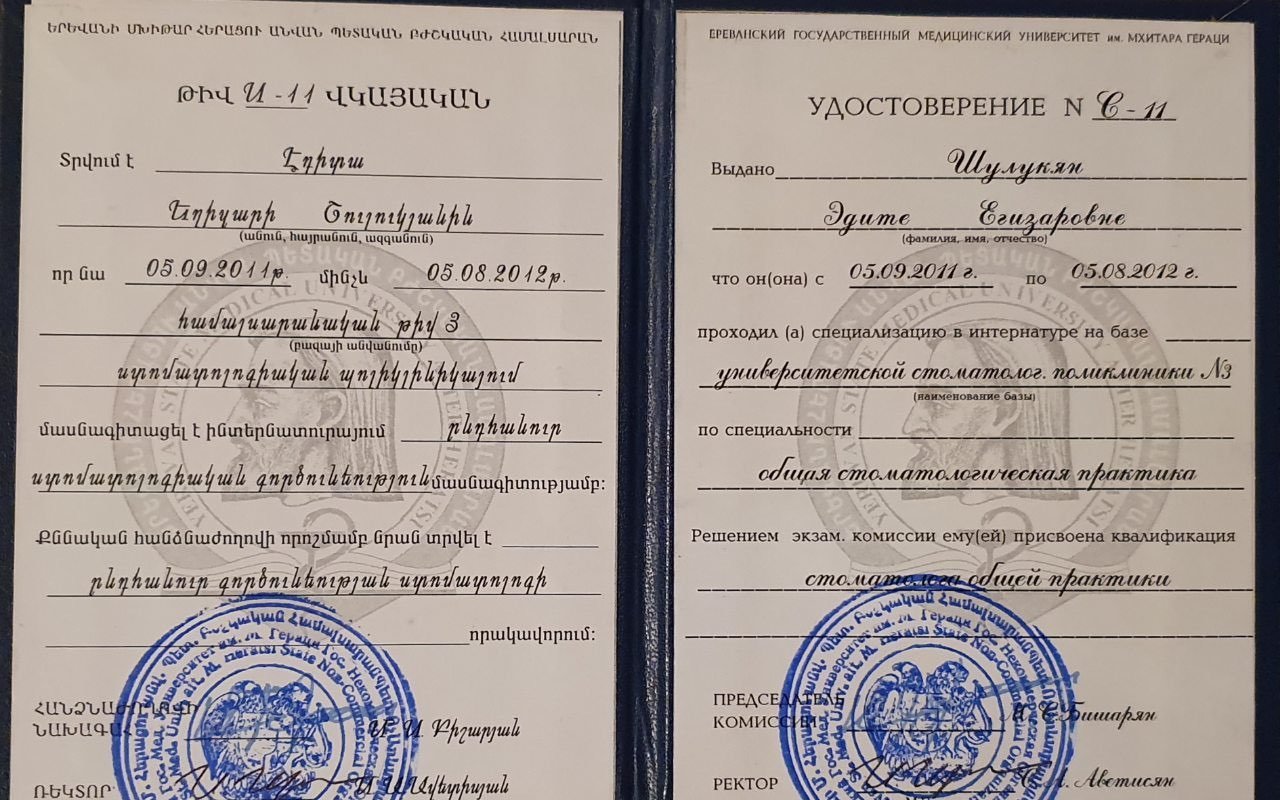 ԵՐԵՎԱՆԻ ՄԽԻԹԱՐ ՀԵՐԱՑՈՒ ԱՆՎԱՆ ՊԵՏԱԿԱՆ ԲԺՇԿԱԿԱՆ ՀԱՄԱԼՍԱՐԱՆ
ԹԻՎ Ս-11 ՎԿԱՅԱԿԱՆ
Տրվում է Էդիտա
Եղիզարի Շուլուկյանին
(անուն, հայրանուն, ազգանուն)
որ նա 05.09.2011թ. մինչև 05.08.2012թ.
համալսարանական թիվ 3
(բազայի անվանումը)
ստոմատոլոգիական պոլիկլինիկայում
մասնագիտացել է ինտերնատուրայում ընդհանուր
ստոմատոլոգիական գործունեություն մասնագիտությամբ:
Քննական հանձնաժողովի որոշմամբ նրան տրվել է
ընդհանուր գործունեության ստոմատոլոգի
որակավորում:
ՀԱՆՁՆԱԺՈՂՈՎԻ
ՆԱԽԱԳԱՀ Մ. Ս. Բիշարյան
ՌԵԿՏՈՐ Ավետիսյան
ЕРЕВАНСКИЙ ГОСУДАРСТВЕННЫЙ МЕДИЦИНСКИЙ УНИВЕРСИТЕТ им. МХИТАРА ГЕРАЦИ
УДОСТОВЕРЕНИЕ N С-11
Выдано Шулукян
Эдите Егизаровне
(фамилия, имя, отчество)
что он(она) с 05.09.2011 г. по 05.08.2012 г.
проходил (а) специализацию в интернатуре на базе
университетской стоматолог. поликлиники N3
(наименование базы)
по специальности
общая стоматологическая практика
Решением экзам. комиссии ему(ей) присвоена квалификация
стоматолога общей практики
ПРЕДСЕДАТЕЛЬ
КОМИССИИ М. С. Бишарян
РЕКТОР Аветисян